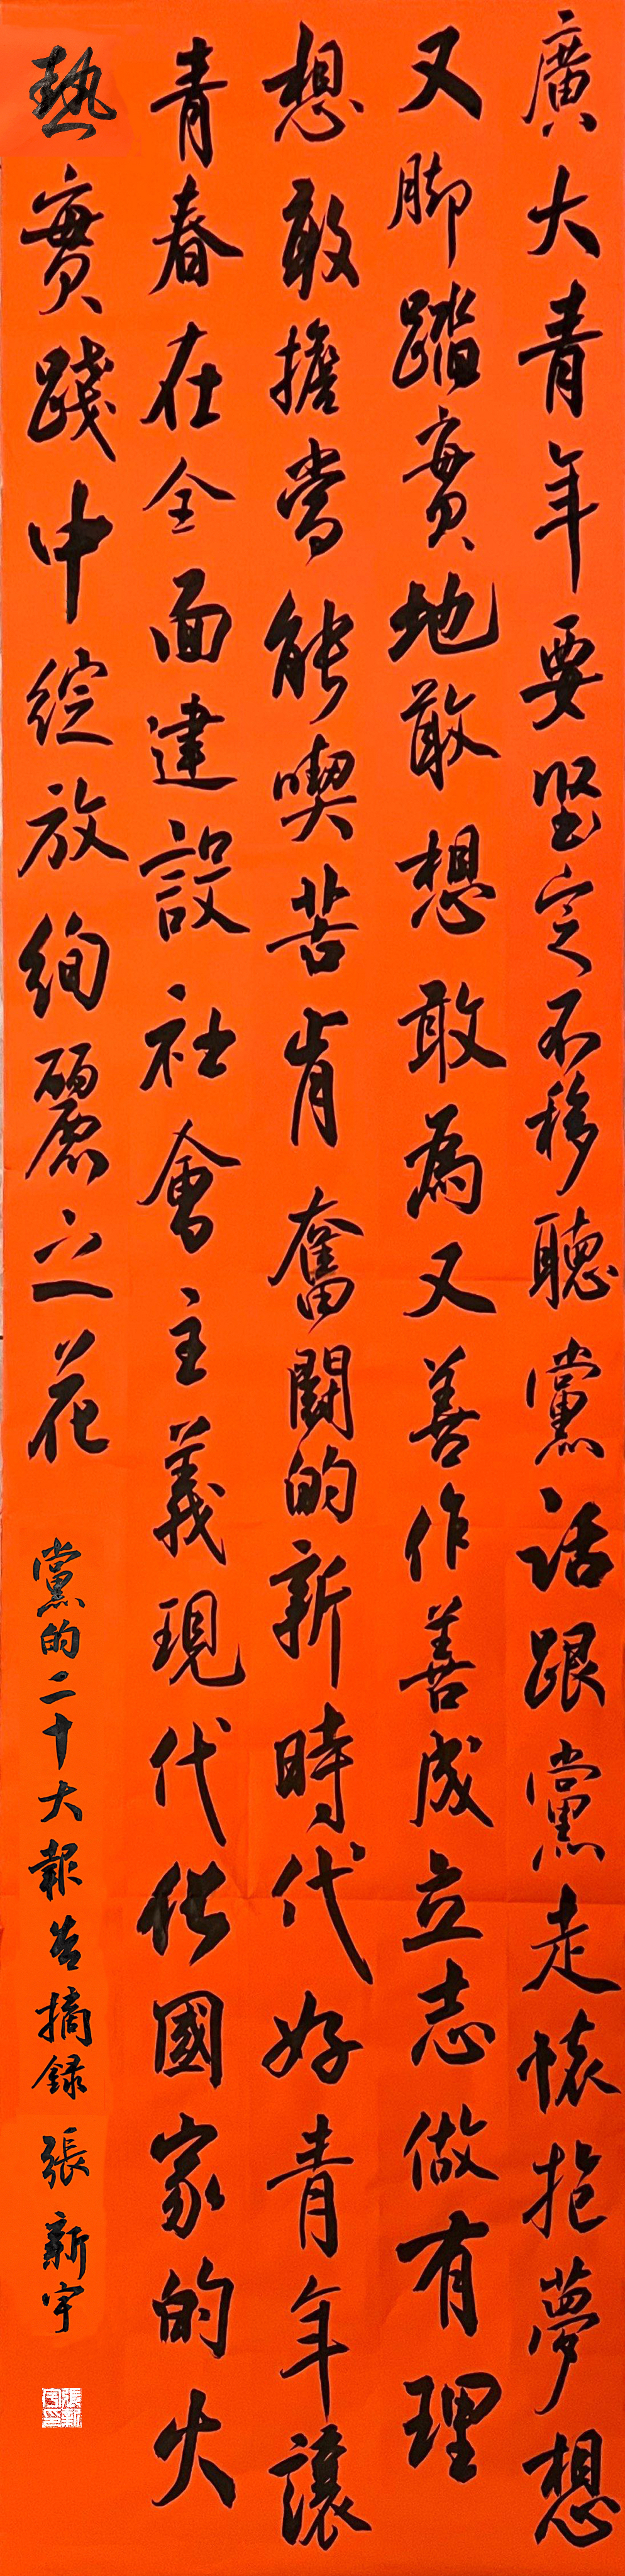 廣大青年要堅定不移聽黨話跟黨走懷抱夢想
又脚踏實地敢想敢為又善作善成立志做有理
想敢擔當能喫苦肯奮鬭的新時代好青年讓
青春在全面建設社會主義現代化國家的火
熱實踐中綻放絢麗之花
黨的二十大報告摘録 張新宇